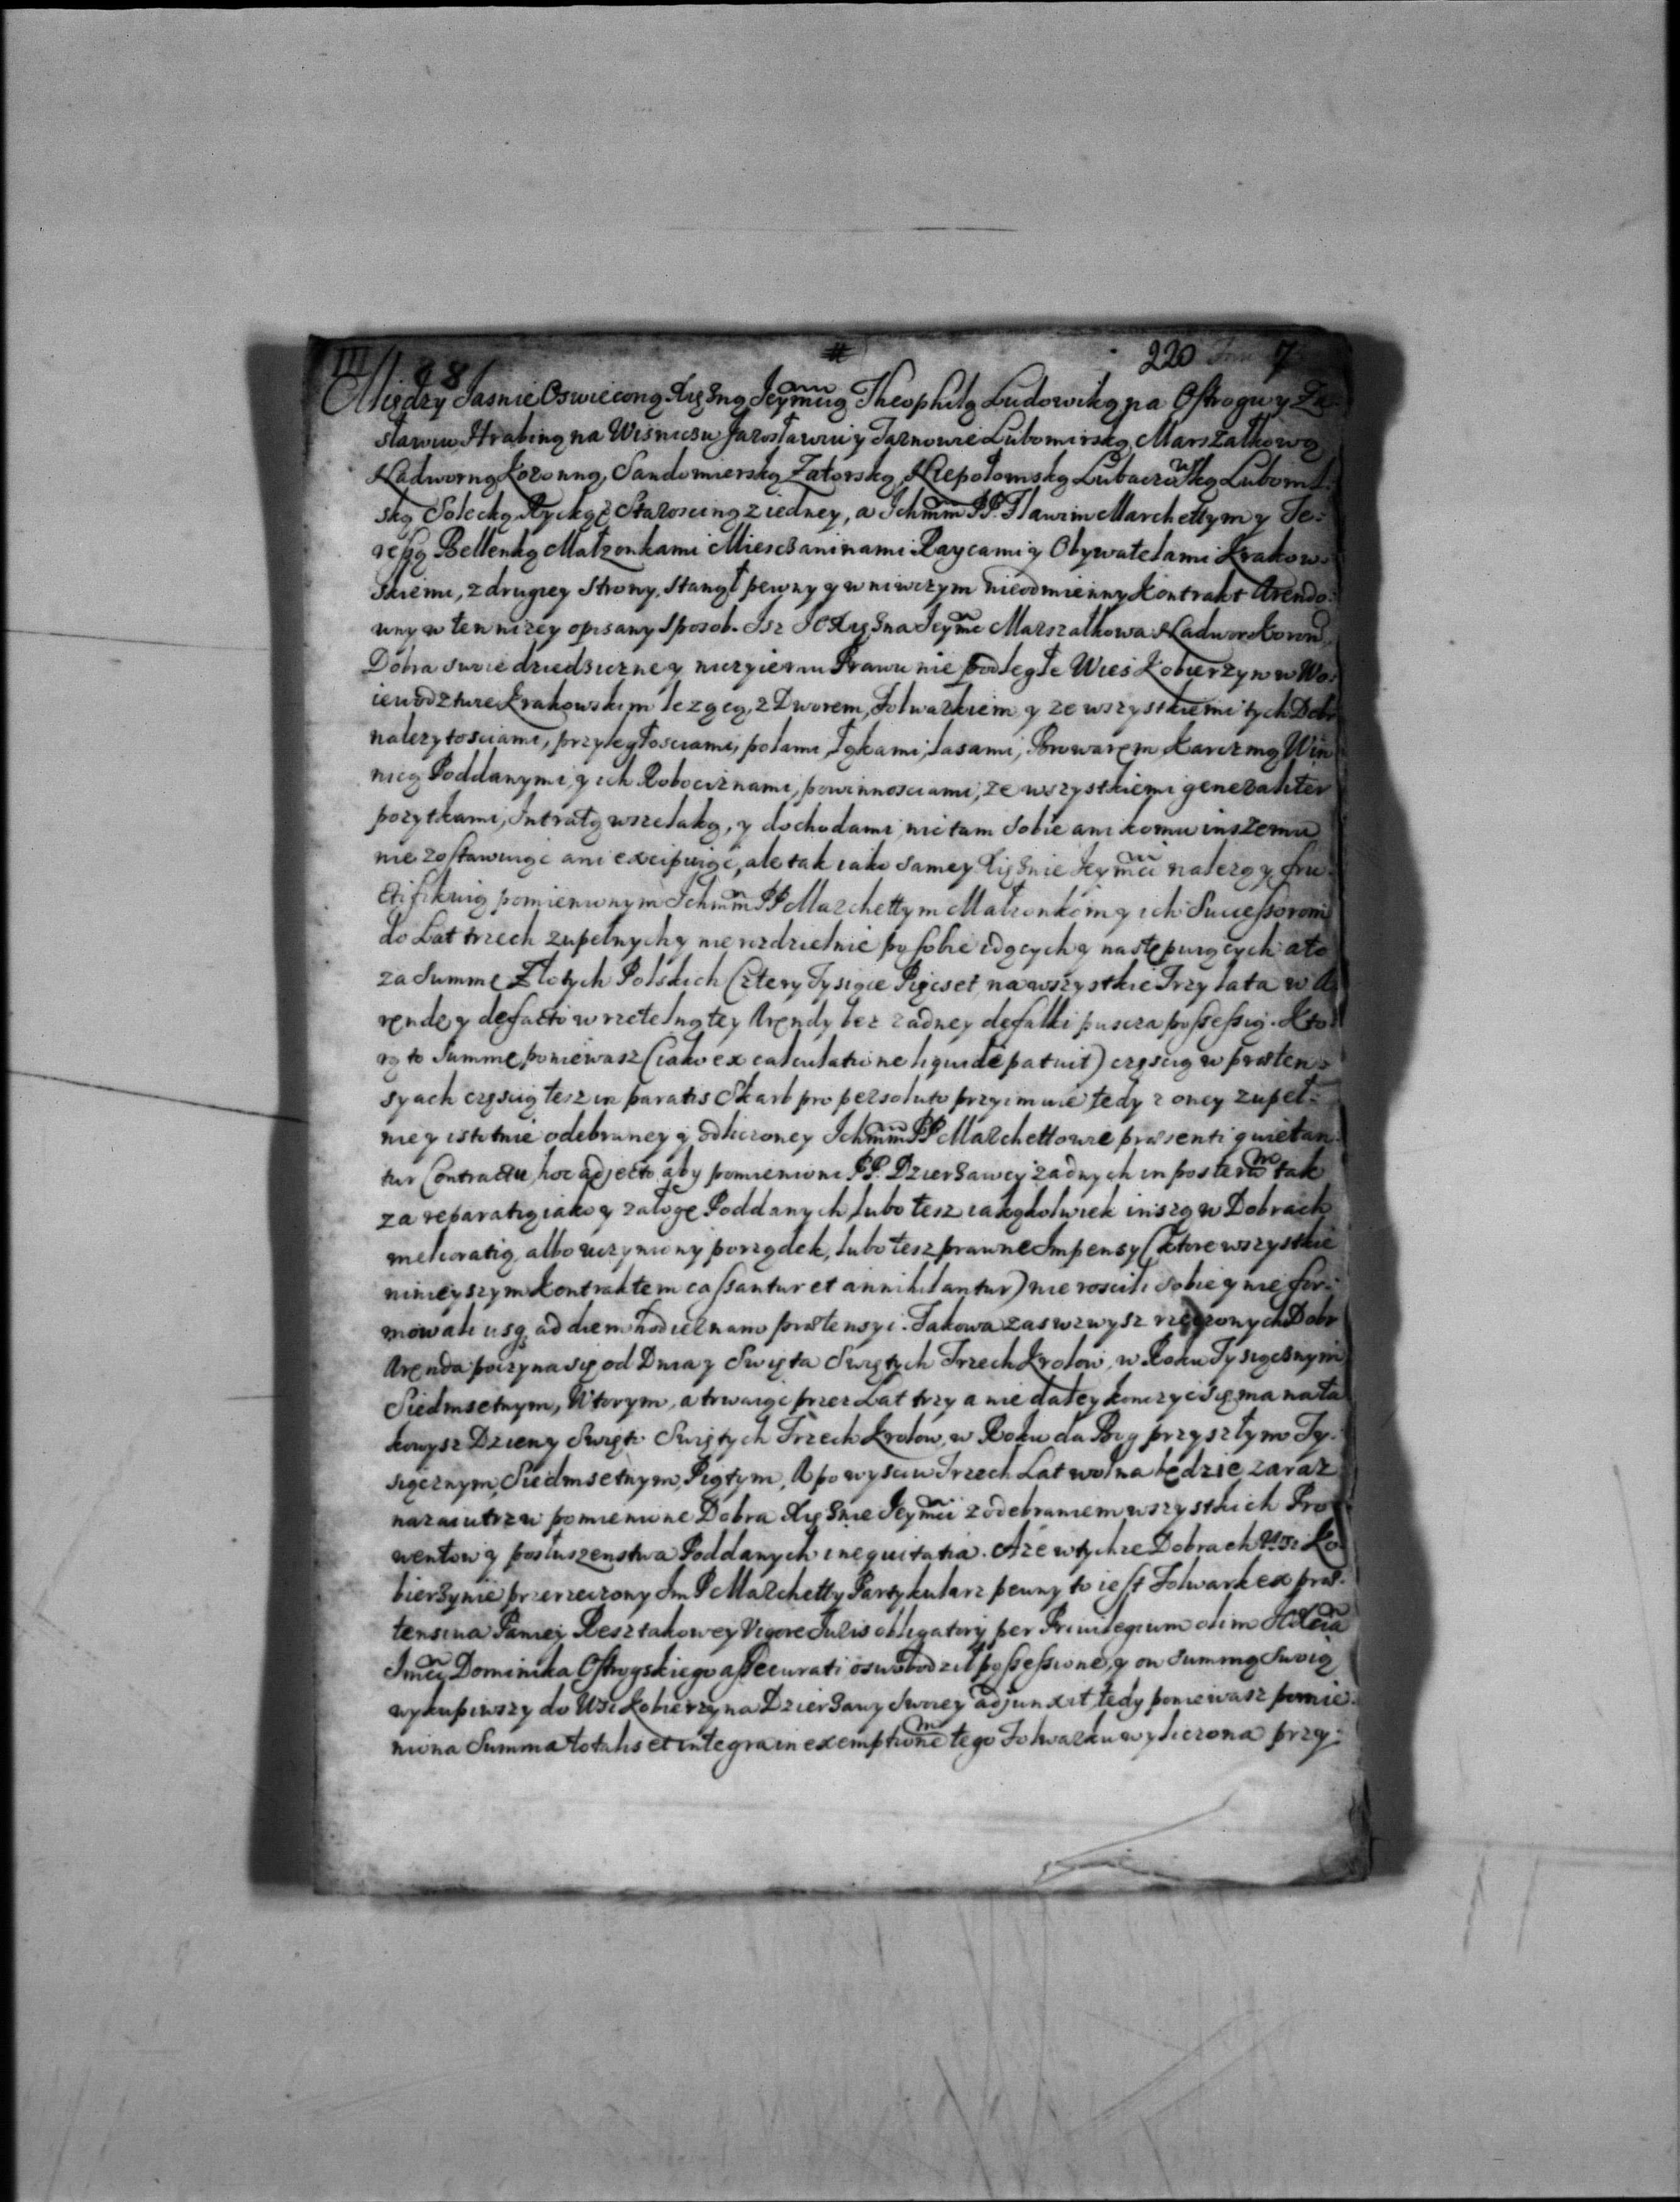 III/ 28 # 220 7
Między Jasnie Oswieconą Xięzną Jeymcią Theophilą Ludowiką na Ostrogu y Za-
sławiu Hrabiną na Wisniczu Jarosławiu y Tarnowie Lubomirską Marszałkową
Nadworną Koronną, Sandomierską Zatorską Niepołomską Lubaczowską Luboml-
ską Solecką Rycką &c Starosciną z iedney, a Ichmm PP. Flawim Marchettym y Te-
ressą Bellenką Małzonkami Miesczaninami Raycami y Obywatelami Krakow-
skiemi, z drugiey strony, stanął pewny y w niwczym nieodmienny Kontrakt Arendo-
wny w ten nizey opisany sposob. Isz JO Xięzna Jeymc Marszałkowa Nadwor Koron,
Dobra swoie dziedziczne y niczyiemu Prawu nie podległe Wies Kobierzyn w Wo-
iewodztwie Krakowskim lezącą, z Dworem, Folwarkiem y ze wszystkiemi tych Dobr
nalezytosciami, przyległosciami, polami, łąkami, lasami, Browarem Karczmą Win-
nicą Poddanymi, y ich Robociznami, powinnosciami, ze wszystkiemi generaliter
pozytkami, Intratą wszelaką, y dochodami nic tam sobie ani komu inszemu
nie zostawuiąc ani excipuiąc, ale tak iako samey Xięznie Jeymci nalezą y fru-
ctifikuią pomienionym Ichmm PP Marchettym Małzonkom y ich Successorom
do Lat trzech zupełnych y nierozdzielnie po sobie idących y następuiących a to
za Summę Złotych Polskich Cztery Tysiące Pięcset na wszystkie Trzy lata w A-
rendę y defacto w rzetelną tey Arendy bez zadney defalki puscza possessią. Kto-
rą to Summę poniewasz (iako ex calculatione liquide patuit) częscią w præten-
syach częscią tesz in paratis Skarb pro persoluto przyimuie tedy z oney zupeł-
nie y istotnie odebraney y odliczoney Ichmm PP Marchettowie præsenti quietan-
tur Contractu, hoc adjecto aby pomienioni PP. Dzierzawcy zadnych in posterum tak
za reparatią iako y załogę Poddanych lubo tesz iakąkolwiek inszą w Dobrach
melioratią, albo uczyniony porządek, lubo tesz prawne Impensy (ktore wszystkie
ninieyszym Kontraktem cassantur et annihilantur) nie roscili sobie y nie for-
mowali usq ad diem hodiernam prætensyi. Takowa zas wzwysz rzeczonych Dobr
Arenda poczyna się od Dnia y Swięta Swiętych Trzech Krolow, w Roku Tysiącznym
Siedmsetnym, Wtorym, a trwaiąc przez Lat trzy a nie daley konczyc się ma na ta-
kowysz Dzien y Swięto Swiętych Trzech Krolow, w Roku da Bog przyszłym Ty-
siącznym, Siedmsetnym, Piątym, A po wysciu Trzech Lat wolna będzie zaraz
nazaiutrz w pomienione Dobra Xięznie Jeymci z odebraniem wszystkich Pro-
wentow y posłuszenstwa Poddanych inequitatia. A ze w tychze Dobrach Wsi Ko-
bierzynie przerzeczony Im P Marchetty Partykularz pewny to iest Folwark ex præ-
tensina Paniey Resztakowey Vigore Juris obligatorij per Priuilegium olim JO Xcia
Imci Dominika Ostrogskiego assecurati oswobodził possessione, y on Summą Swoią
wykupiwszy do Wsi Kobierzyna Dzierzawy Swoiey adjunxit, tedy poniewasz pomie-
niona Summa totalis et integra in exemptionem tego Folwarku wyliczona przy-